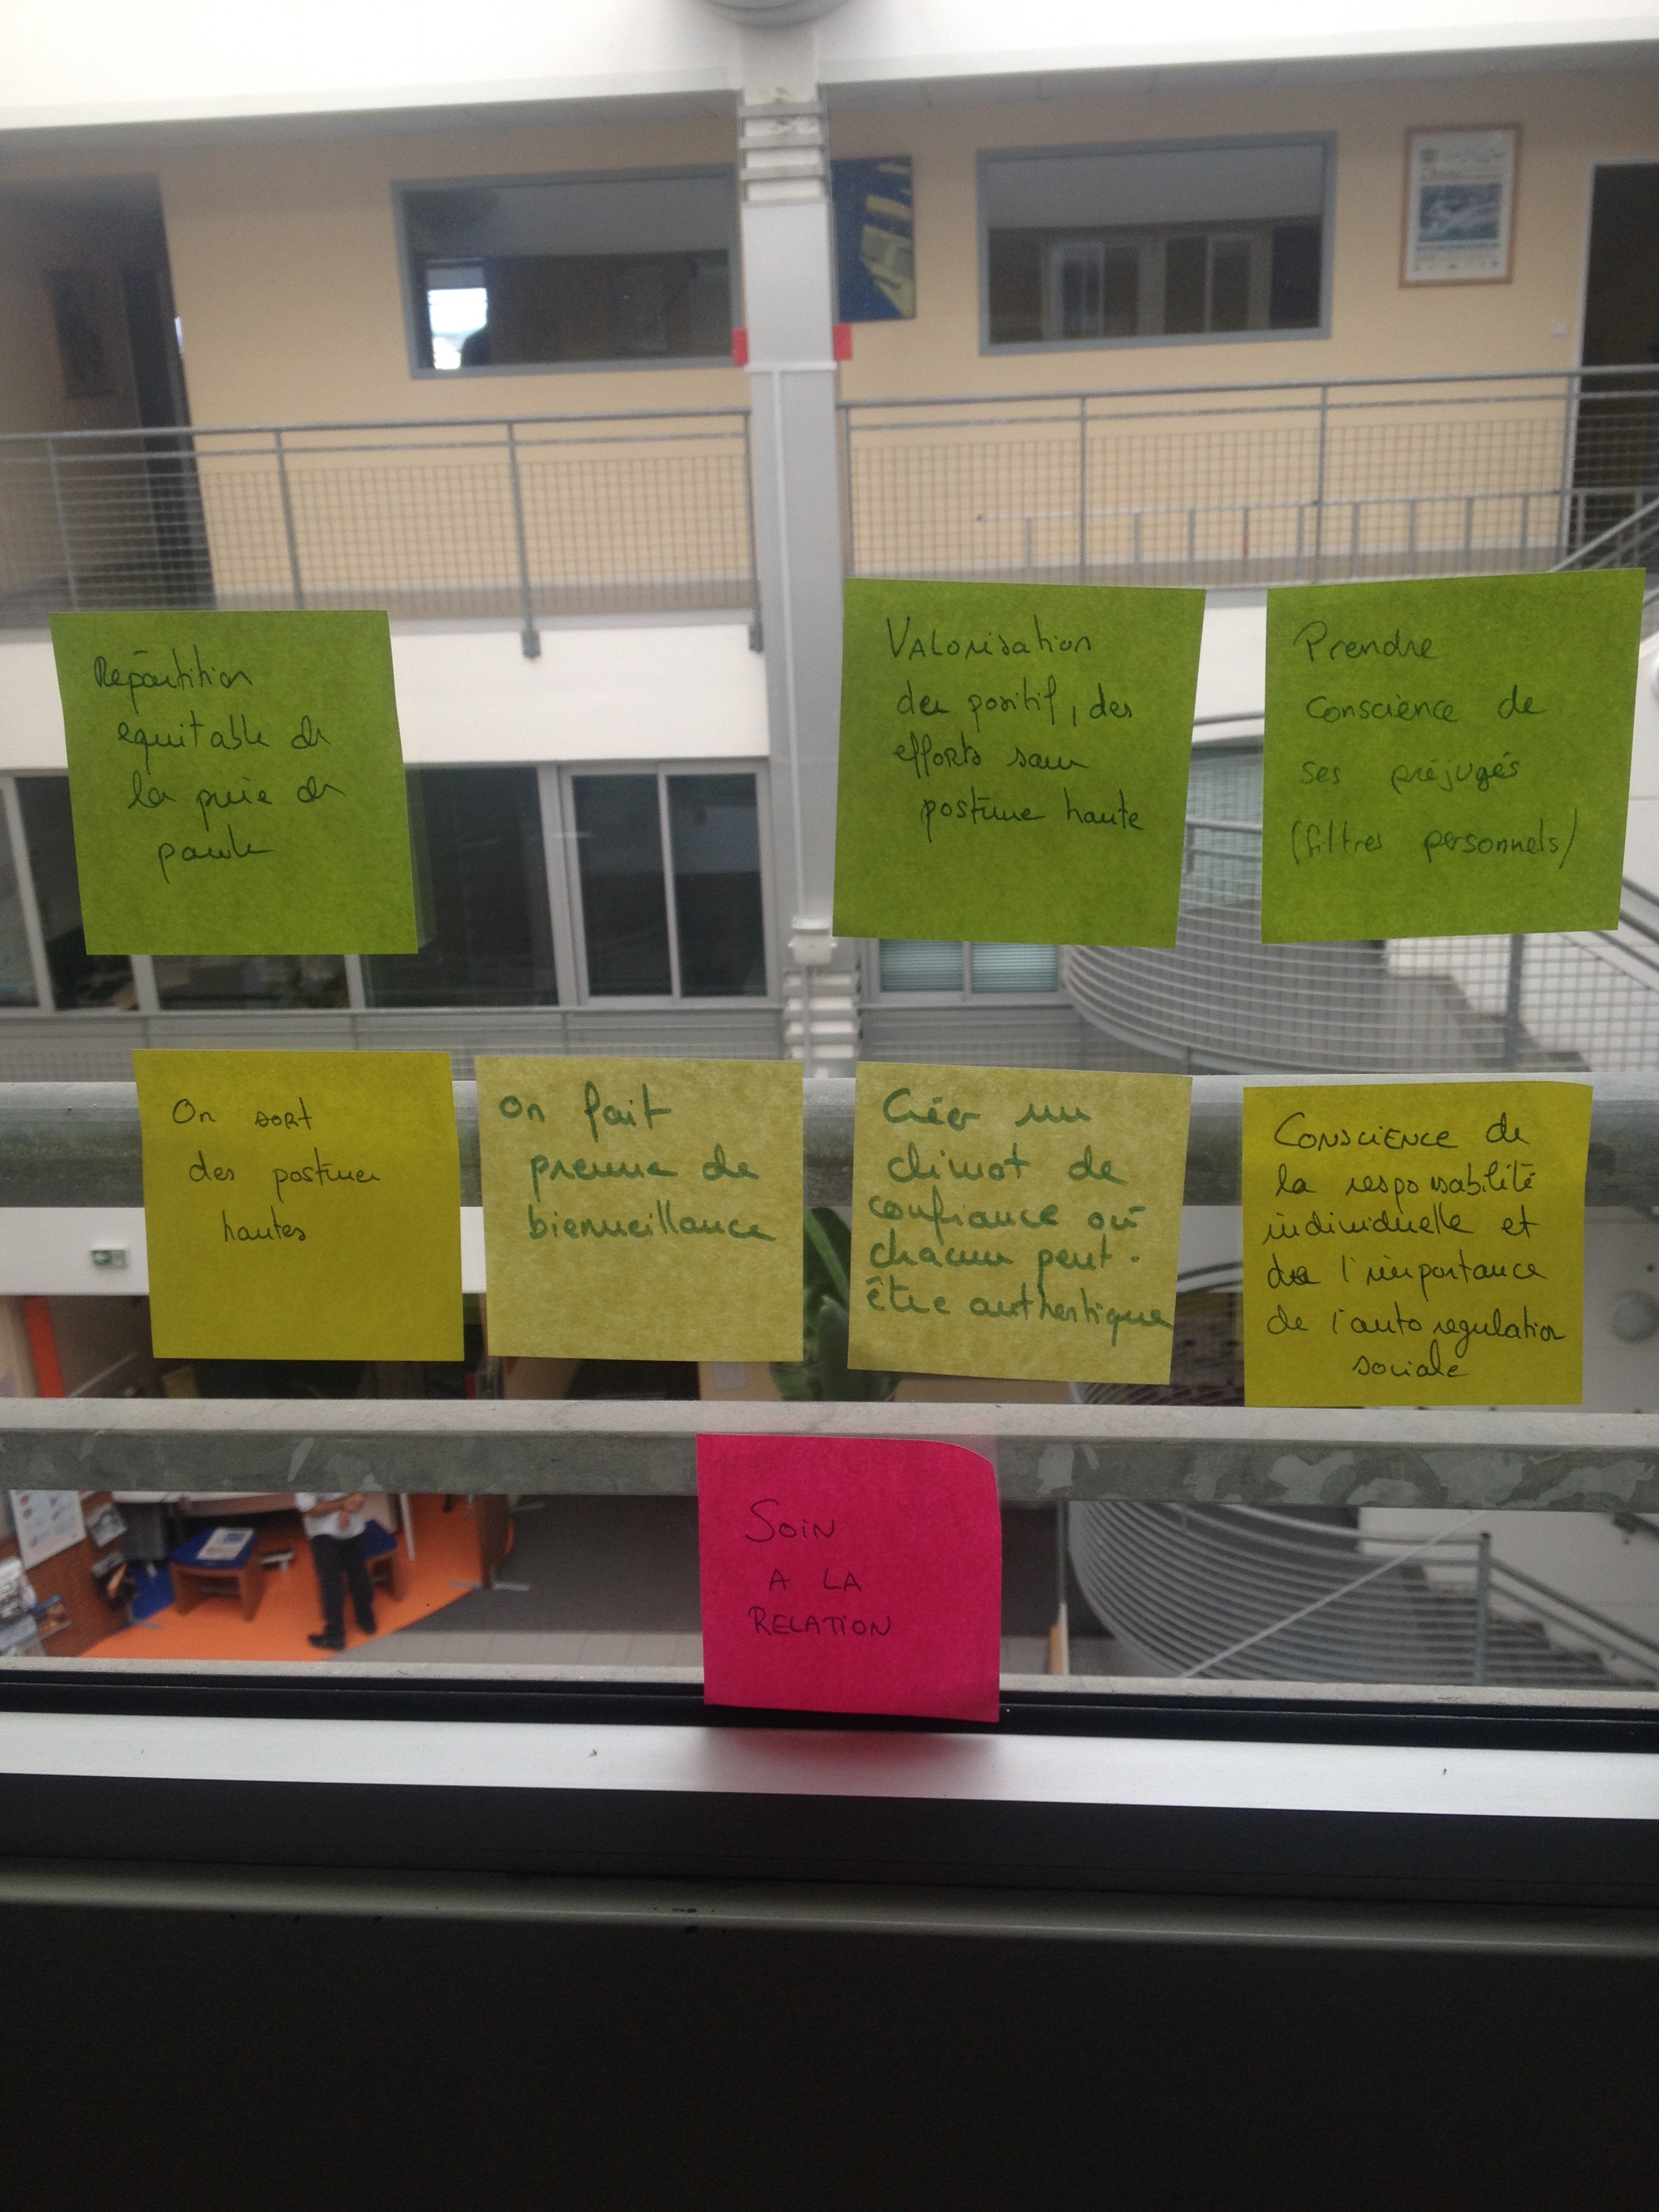 Répartition
equitable de
la prise de
parole
Valorisation
du positif, des
efforts sans
posture haute
Prendre
conscience de
ses préjugés
(filtres personnels)
On sort
des postures
hautes
On fait
preuve de
bienveillance
Créer un
climat de
confiance où
chacun peut
être authentique
Conscience de
la responsabilité
individuelle et
de l'importance
de l'auto regulation
sociale
SOIN
A LA
RELATION